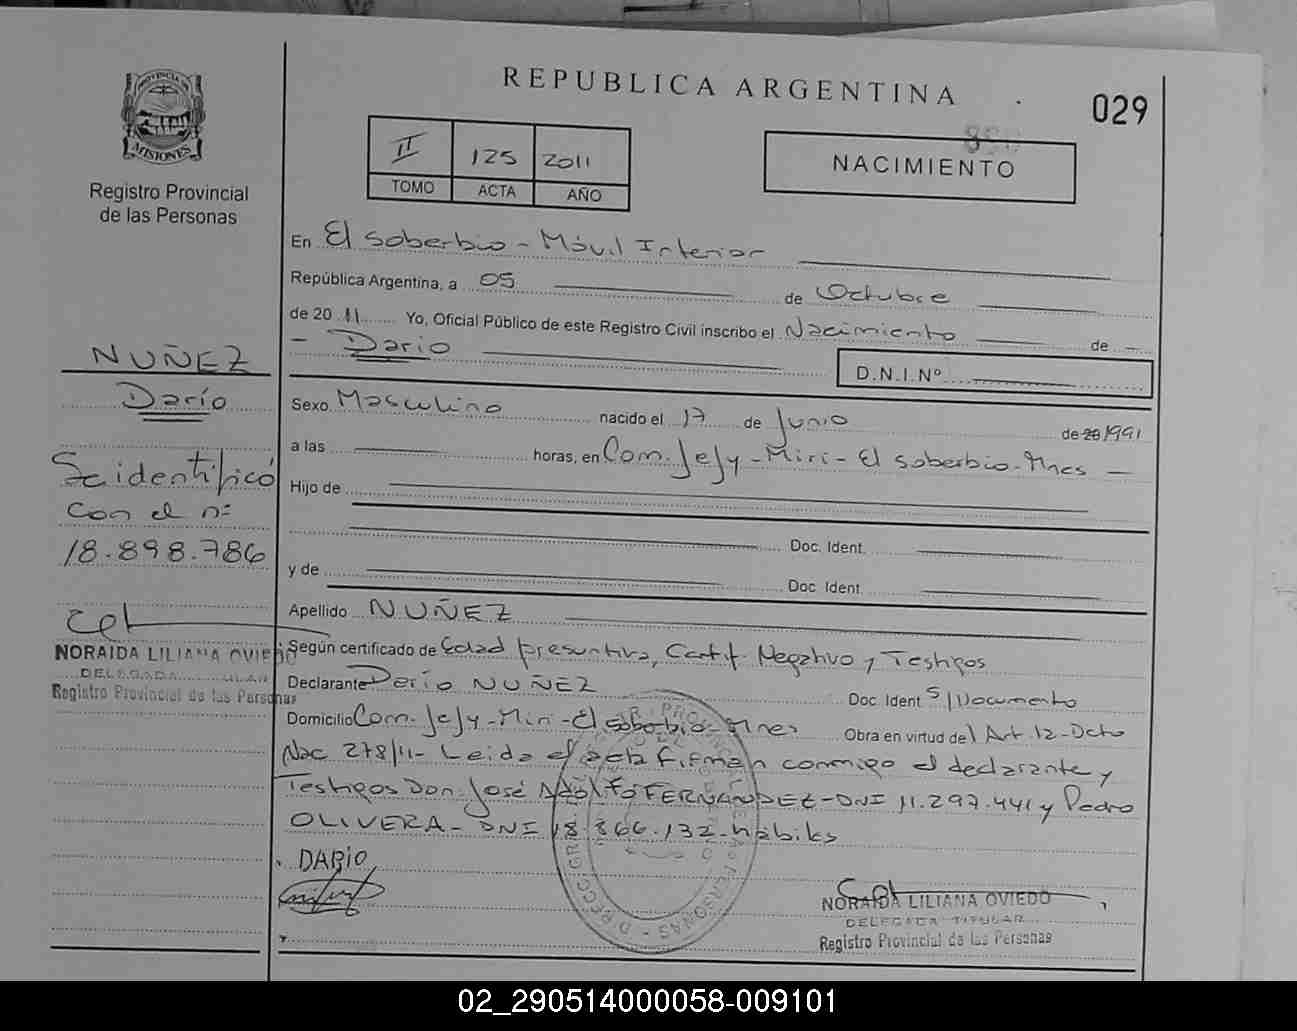 REPUBLICA ARGENTINA
029
PROVINCIA DE MISIONES
Registro Provincial
de las Personas
II 125 2011
TOMO ACTA AÑO
NACIMIENTO
En El Soberbio - Móvil Interior
República Argentina, a 05 de Octubre
de 2011 Yo, Oficial Público de este Registro Civil inscribo el Nacimiento de -
- Dario
D.N.I. Nº
NUÑEZ
Darío
Se identificó
con el nº
18.898.786
NORAIDA LILIANA OVIEDO
DELEGADA TITULAR
Registro Provincial de las Personas
Sexo Masculino nacido el 17 de Junio de 20 1991
a las horas, en Com. Jejy-Miri- El Soberbio-Mnes -
Hijo de
Doc. Ident.
y de
Doc. Ident.
Apellido NUÑEZ
Según certificado de Edad presuntiva, Certif. Negativo y Testigos
Declarante Darío NUÑEZ Doc. Ident S/Documento
Domicilio Com. Jejy-Miri-El Soberbio Mnes Obra en virtud del Art. 12-Dcto
Nac 278/11- Leida el acta firman conmigo el declarante y
Testigos Don José Adolfo FERNANDEZ-DNI 11.297.441 y Pedro
OLIVERA- DNI 18.866.132-hábiles
DARIO
NORAIDA LILIANA OVIEDO
DELEGADA TITULAR
Registro Provincial de las Personas
02_290514000058-009101